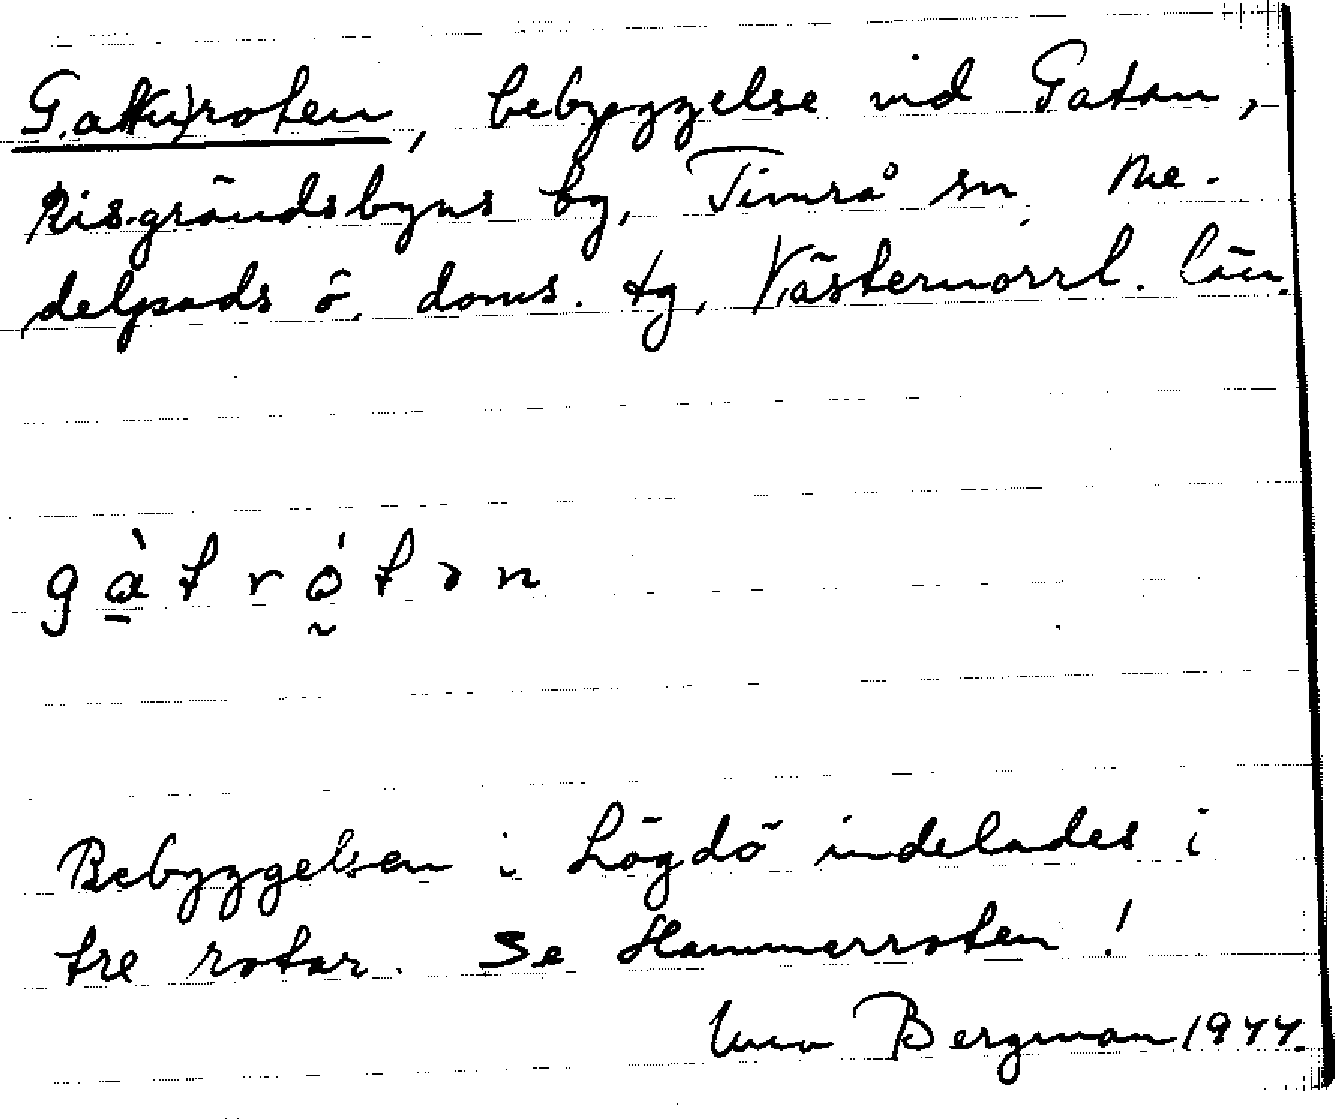 Gat(u)roten, bebyggelse vid Gatan,
Risgrändsbyns by, Timrå sn, Me-
delpads ö. doms. tg, Västernorrl. län.
gàt rót ən
Bebyggelsen i Lögdö indelades i
tre rotar. Se Hammerroten!
Bergman 1944.